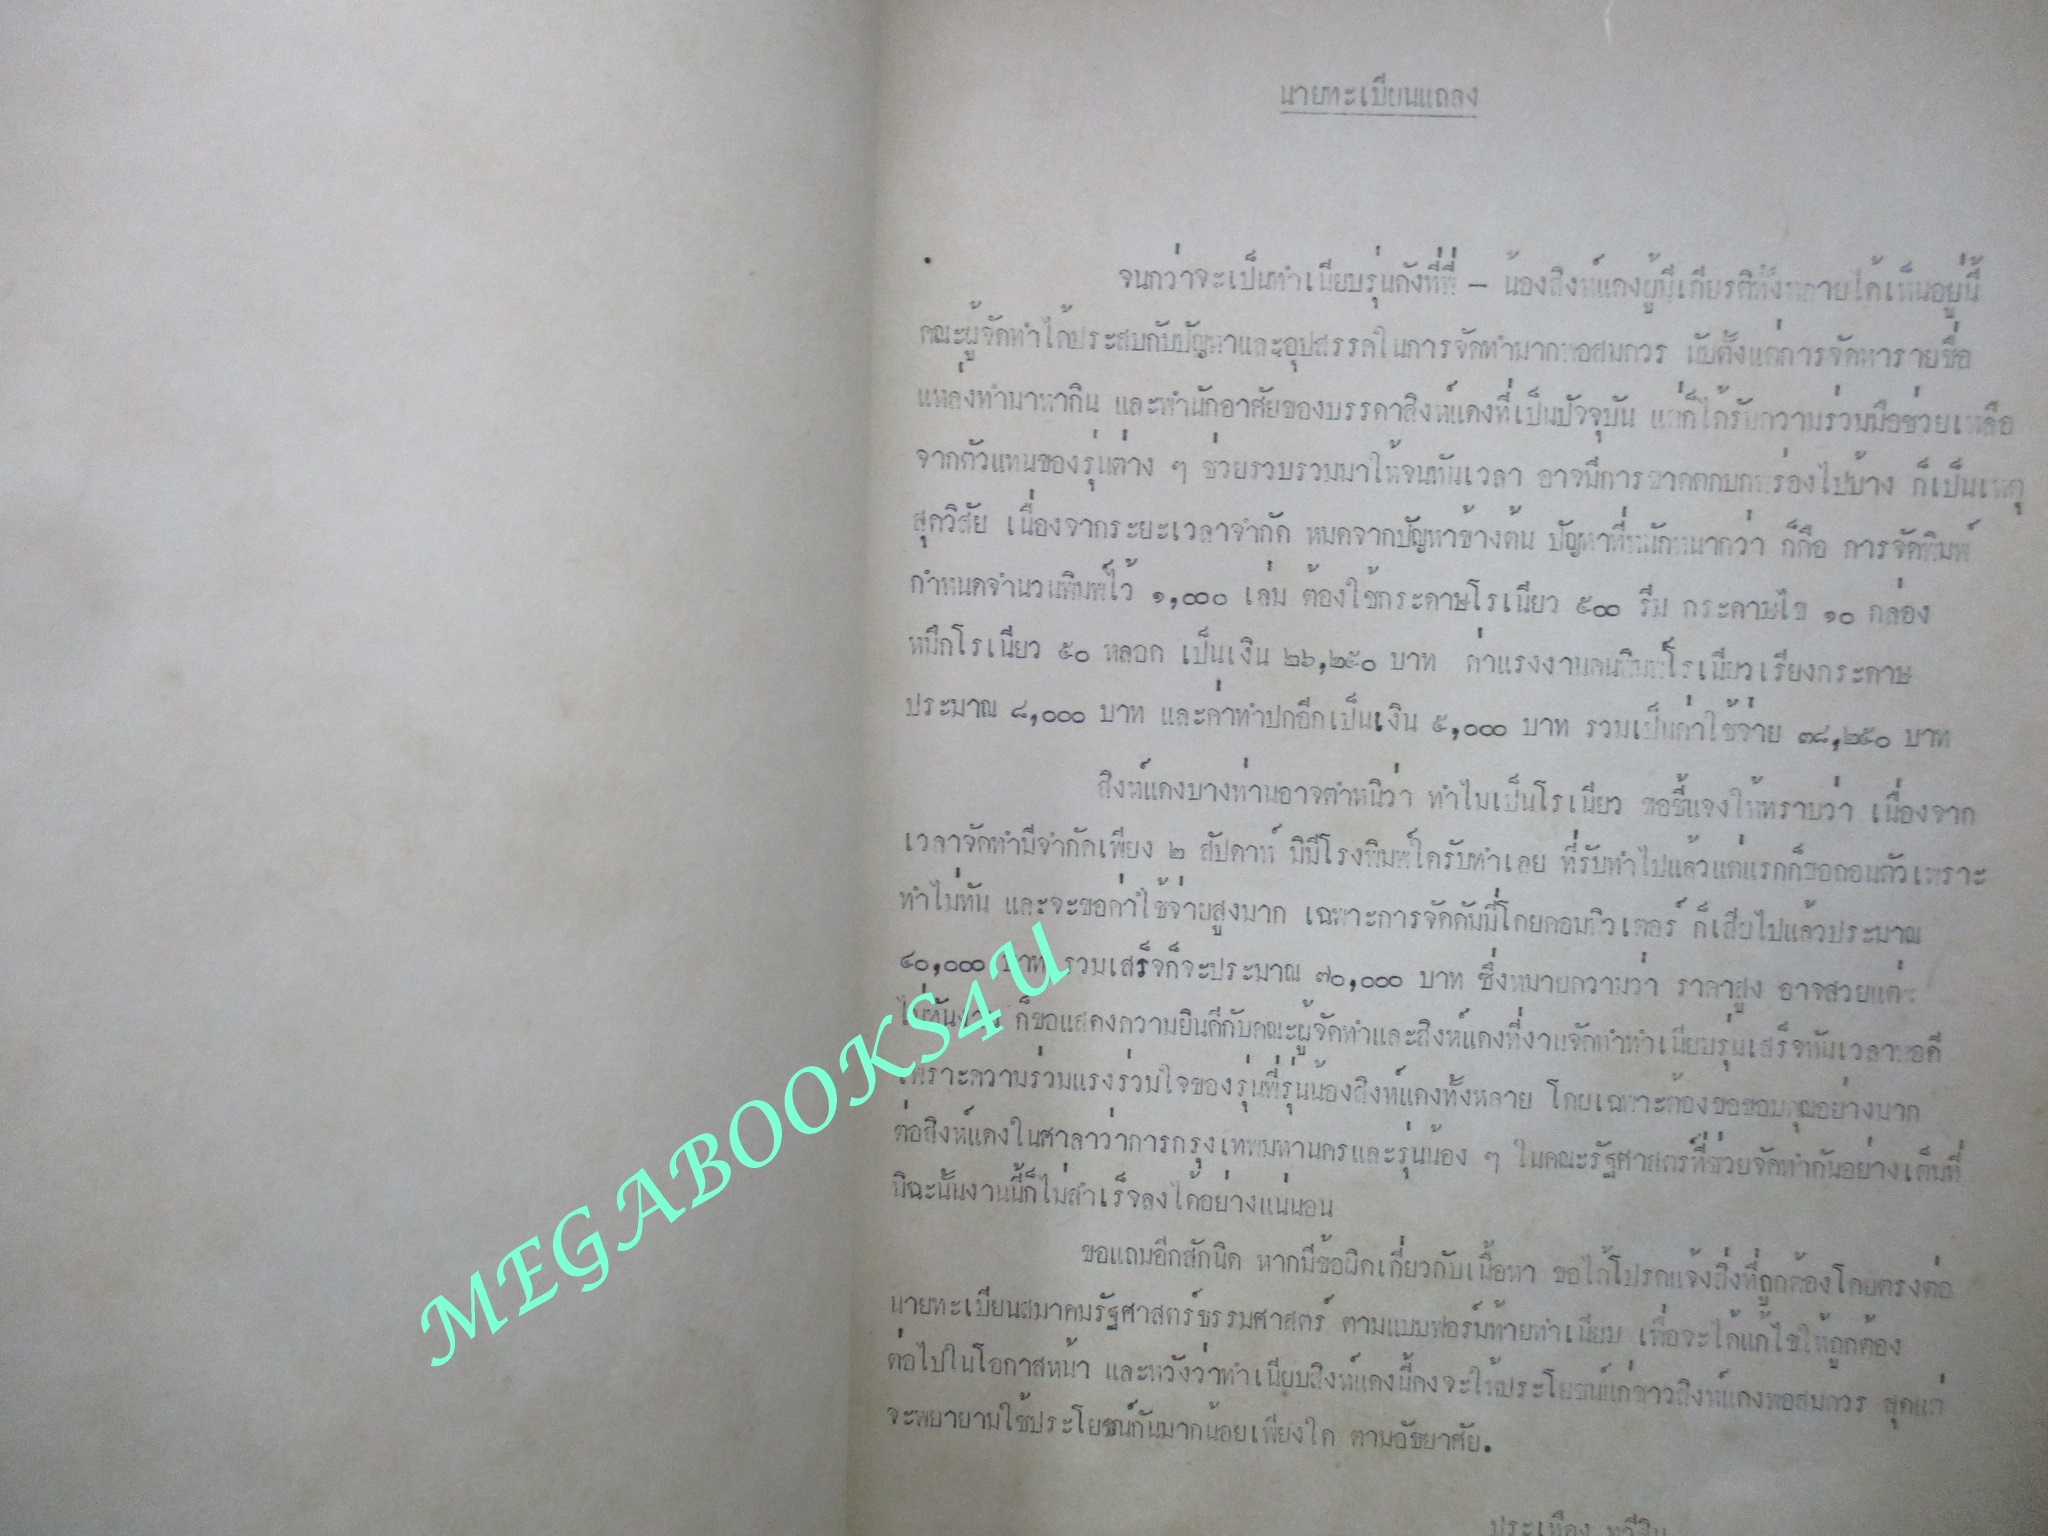 นายทะเบียนแถลง
จนกว่าจะเป็นทำเนียบรุ่นดังที่พี่ – น้องสิงห์แดงผู้มีเกียรติทั้งหลายได้เห็นอยู่นี้
คณะผู้จัดทำได้ประสบกับปัญหาและอุปสรรคในการจัดทำมากพอสมควร นับตั้งแต่การจัดหารายชื่อ
แหล่งทำมาหากิน และพำนักอาศัยของบรรดาสิงห์แดงที่เป็นปัจจุบัน แต่ก็ได้รับความร่วมมือช่วยเหลือ
จากตัวแทนของรุ่นต่าง ๆ ช่วยรวบรวมมาให้จนทันเวลา อาจมีการขาดตกบกพร่องไปบ้าง ก็เป็นเหตุ
สุดวิสัย เนื่องจากระยะเวลาจำกัด หมดจากปัญหาข้างต้น ปัญหาที่หนักหนากว่า ก็คือ การจัดพิมพ์
กำหนดจำนวนพิมพ์ไว้ ๑,๐๐๐ เล่ม ต้องใช้กระดาษโรเนียว ๕๐๐ รีม กระดาษไข ๑๐ กล่อง
หมึกโรเนียว ๕๐ หลอด เป็นเงิน ๒๖,๒๕๐ บาท ค่าแรงงานคนพิมพ์โรเนียวเรียงกระดาษ
ประมาณ ๘,๐๐๐ บาท และค่าทำปกอีกเป็นเงิน ๕,๐๐๐ บาท รวมเป็นค่าใช้จ่าย ๓๘,๒๕๐ บาท
สิงห์แดงบางท่านอาจตำหนิว่า ทำไมเป็นโรเนียว ขอชี้แจงให้ทราบว่า เนื่องจาก
เวลาจัดทำมีจำกัดเพียง ๒ สัปดาห์ มิมีโรงพิมพ์ใดรับทำเลย ที่รับทำไปแล้วแต่แรกก็ขอถอนตัวเพราะ
ทำไม่ทัน และจะขอค่าใช้จ่ายสูงมาก เฉพาะการจัดดัมมี่โดยคอมพิวเตอร์ ก็เสียไปแล้วประมาณ
๔๐,๐๐๐ บาท รวมเสร็จก็จะประมาณ ๗๐,๐๐๐ บาท ซึ่งหมายความว่า ราคาสูง อาจสวยแต่
ไม่ทันงาน ก็ขอแสดงความยินดีกับคณะผู้จัดทำและสิงห์แดงที่งานจัดทำทำเนียบรุ่นเสร็จทันเวลาพอดี
เพราะความร่วมแรงร่วมใจของรุ่นพี่รุ่นน้องสิงห์แดงทั้งหลาย โดยเฉพาะต้องขอขอบคุณอย่างมาก
ต่อสิงห์แดงในศาลาว่าการกรุงเทพมหานครและรุ่นน้อง ๆ ในคณะรัฐศาสตร์ที่ช่วยจัดทำกันอย่างเต็มที่
มิฉะนั้นงานนี้ก็ไม่สำเร็จลงได้อย่างแน่นอน
ขอแถมอีกสักนิด หากมีข้อผิดเกี่ยวกับเนื้อหา ขอได้โปรดแจ้งสิ่งที่ถูกต้องโดยตรงต่อ
นายทะเบียนสมาคมรัฐศาสตร์ธรรมศาสตร์ ตามแบบฟอร์มท้ายทำเนียบ เพื่อจะได้แก้ไขให้ถูกต้อง
ต่อไปในโอกาสหน้า และหวังว่าทำเนียบสิงห์แดงนี้คงจะให้ประโยชน์แก่ชาวสิงห์แดงพอสมควร สุดแต่
จะพยายามใช้ประโยชน์กันมากน้อยเพียงใด ตามอัธยาศัย.
MEGABOOKS4U